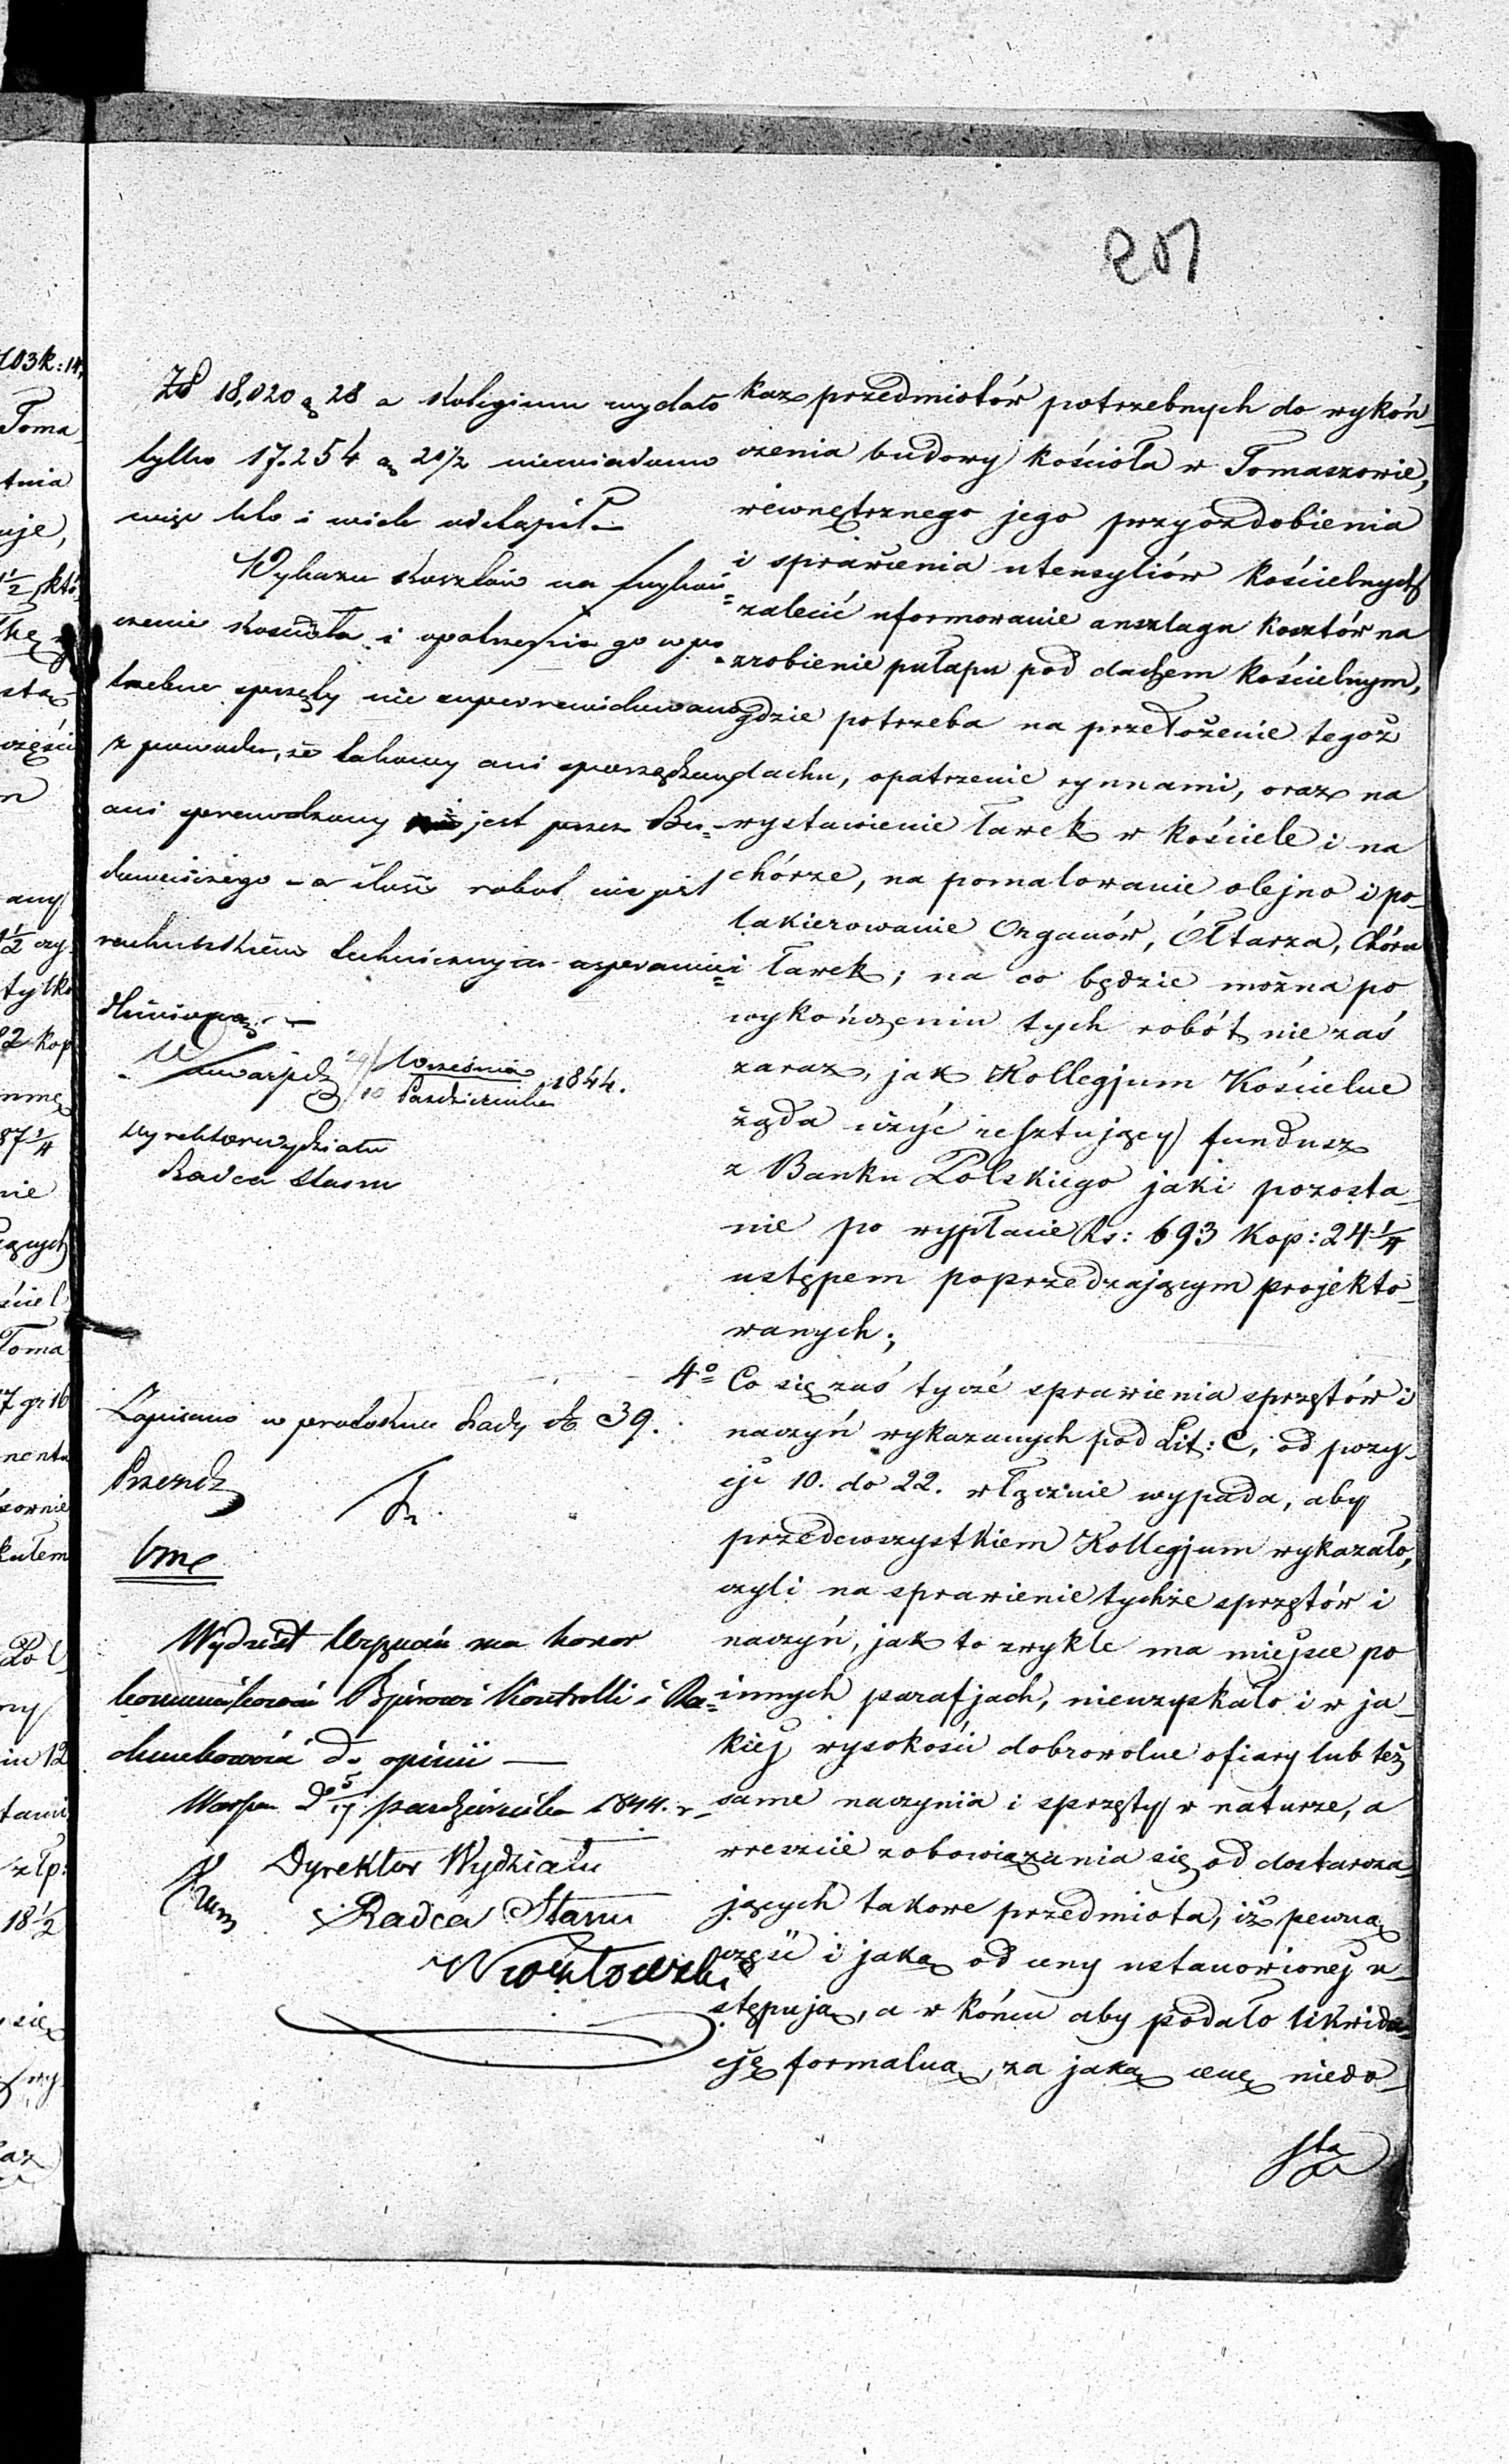 201
Zł 18,020 g 28 a Kolegium wydało
tylko 17.254 g 20½ niewiadomo
więc kto i wiele odstąpił. —
Wykazu kosztów na wykoń=
czenie kościoła i opatrzenia go w po=
trzebne sprzęty nie superrewidowano
z powodu, że takowy ani sporządzony
ani sprawdzony jest przez Bu=
downiczego – a ilość robot nie jest
rachunkiem technicznym usprawie=
dliwiona. —
Września
Października 1844.
Dyrektor Wydziału
Radca Stanu
Zapisano w protokule Rady № 39.
Wydział Wyznań ma honor
kommunikować Bjurowi Kontrolli i Ra=
chunkowości do opinii —
Warsza. D. 5/17 października 1844. r.
Dyrektor Wydziału
Radca Stanu
kaz przedmiotów potrzebnych do wykoń_
czenia budowy kościoła w Tomaszowie,
wewnętrznego jego przyozdobienia
i sprawienia utensyliów kościelnych
zalecić uformowanie anszlagu kosztów na
zrobienie pułapu pod dachem kościelnym,
gdzie potrzeba na przełożenie tegoż
dachu, opatrzenie rynnami, oraz na
wystawienie ławek w kościele i na
chórze, na pomalowanie olejno i po_
lakierowanie Organów, Ołtarza, Chóru
i ławek; na co będzie można po
wykończeniu tych robót nie zaś
zaraz, jak Kollegjum Kościelne
żąda użyć resztujący fundusz
z Banku Polskiego jaki pozosta_
nie po wypłacie Rs: 693 Kop: 24¼
ustępem poprzedzającym projekto_
wanych;
4º Co się zaś tycze sprawienia sprzętów i
naczyń wykazanych pod Lit: C, od pozy_
cji 10. do 22. włącznie wypada, aby
przedewszystkiem Kollegjum wykazało,
czyli na sprawienie tychże sprzętów i
naczyń, jak to zwykle ma miejsce po
innych parafjach, nieuzyskało i w ja_
kiej wysokości dobrowolne ofiary lub też
same naczynia i sprzęty w naturze, a
wreszcie zobowiązania się od dostarcza_
jących takowe przedmiota, iż pewną
część i jaką od ceny ustanowionej u_
stępują, a w końcu aby podało likwida_
cję formalną, za jaką cenę niedo_
sta